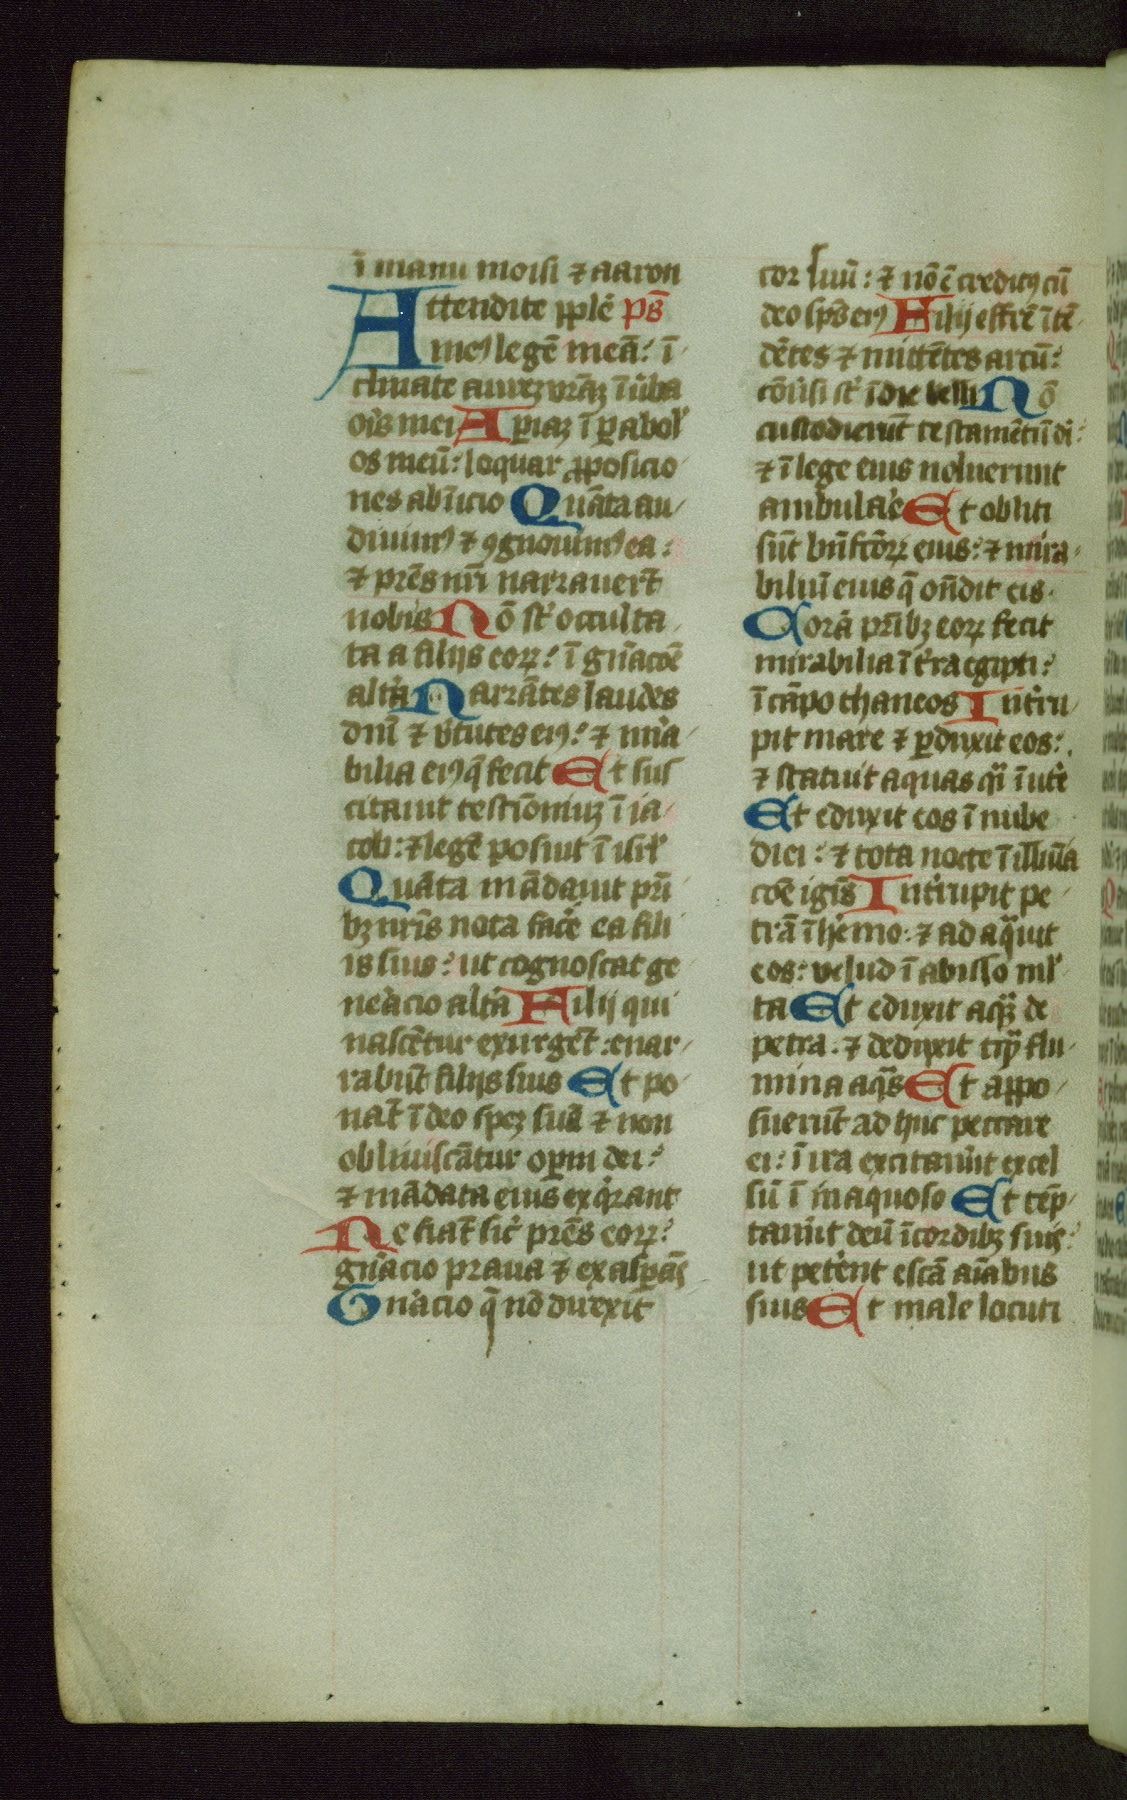 ī manu moisi ⁊ aaron
Attendite pple̅ ps̅
me9 legē meā: ī
clinate aurez vr̅az ī uba
oris mei Aperiaz ī parabol'
os meū: loquar pposicio
nes ab īicio Quāta au
diuim9 ⁊ 9gnouim9 ea:
⁊ pr̅es nr̅i narrauert̄
nobis Nō st' occulta
ta a filijs eoꝝ: ī gn̅acōe
altīa Narrātes laudes
dn̅i ⁊ v'tutes ei9: ⁊ mira
bilia ei9 q̄ fecit Et sus
citauit testīoniuz ī ia
cob: ⁊ legē posuit ī isrl'
Quāta mādauit pr̅i
bz nr̅is nota fac'e ea fili
is suis: ut cognoscat ge
neracio alt'a Filij qui
nascētur ⁊ exurgēt: enar
rabūt filijs suis Et po
nāt ī deo spez suā ⁊ non
obliuiscātur operum dei:
⁊ mādata eius exq'rant
Ne fiāt sic' pr̅es eoꝝ:
gn̅acio praua ⁊ exasp̱ās
Gn̅acio q̄ nō direxit
cor suū: ⁊ nō ē creditus cū
deo sp̅s ei9 Filij effrē ītē
dētes ⁊ mittētes arcū:
cōuersi st' ī die belli Nō
custodierūt testamētū di̅:
⁊ ī lege eius noluerunt
ambulare Et obliti
sūt bn̅fcōꝝ eius: ⁊ mira
biliū eius q̄ on̅dit eis
Corā pr̅ibz eoꝝ fecit
mirabilia ī t'ra egipti:
ī cāpo thaneos Int'ru
pit mare ⁊ p̱duxit eos:
⁊ statuit aquas q̄i ī ut'e
Et eduxit eos ī nube
diei: ⁊ tota nocte ī illumia
cōe ignis Int'rupit pe
trā ī h'emo: ⁊ adaq̄uit
eos: velud ī abisso ml'
ta Et eduxit aq̄z de
petra. ⁊ deduxit tq̄ flu
mina aq̄s Et appo
suerūt adhuc peccare
ei: ī ira excitauūt excel
sū ī inaquoso Et tēp
tauūt deū ī cordibz suis:
ut pet'ent escā aīabus
suis Et male locuti